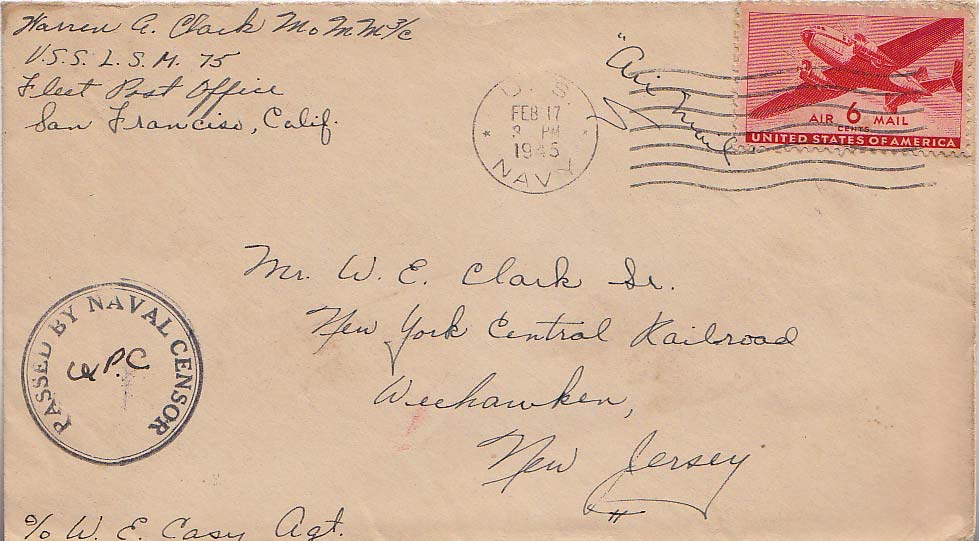 Warren A. Clark Mo M M 3/c
U.S.S. L.S.M. 75
Fleet Post Office
San Franciso, Calif.
"Air Mail
U.S.
FEB 17
3 PM
1945
NAVY
AIR 6 MAIL
CENTS
UNITED STATES OF AMERICA
Mr. W. E. Clark Sr.
New York Central Railroad
Weehawken,
New Jersey
PASSED BY NAVAL CENSOR
c/o W. E. Casy Agt.